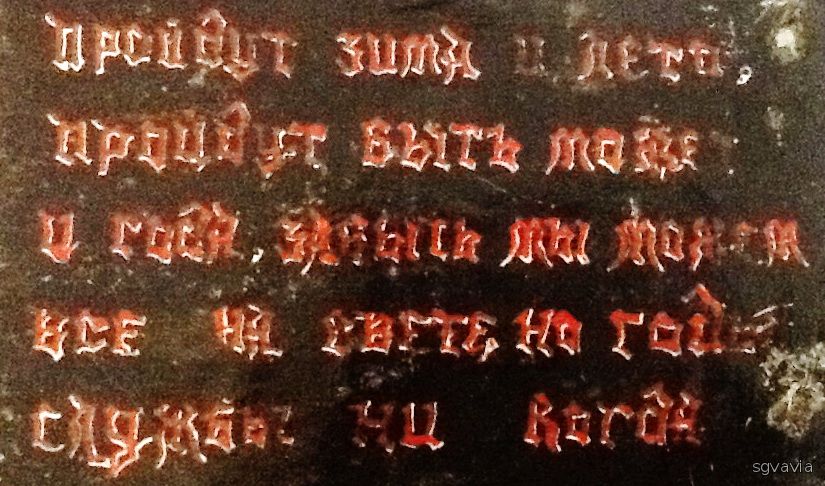 пройдут зима и лето,
пройдут быть может
и года, забыть мы можем
все на свете, но годы
службы ни когда
sgvavia